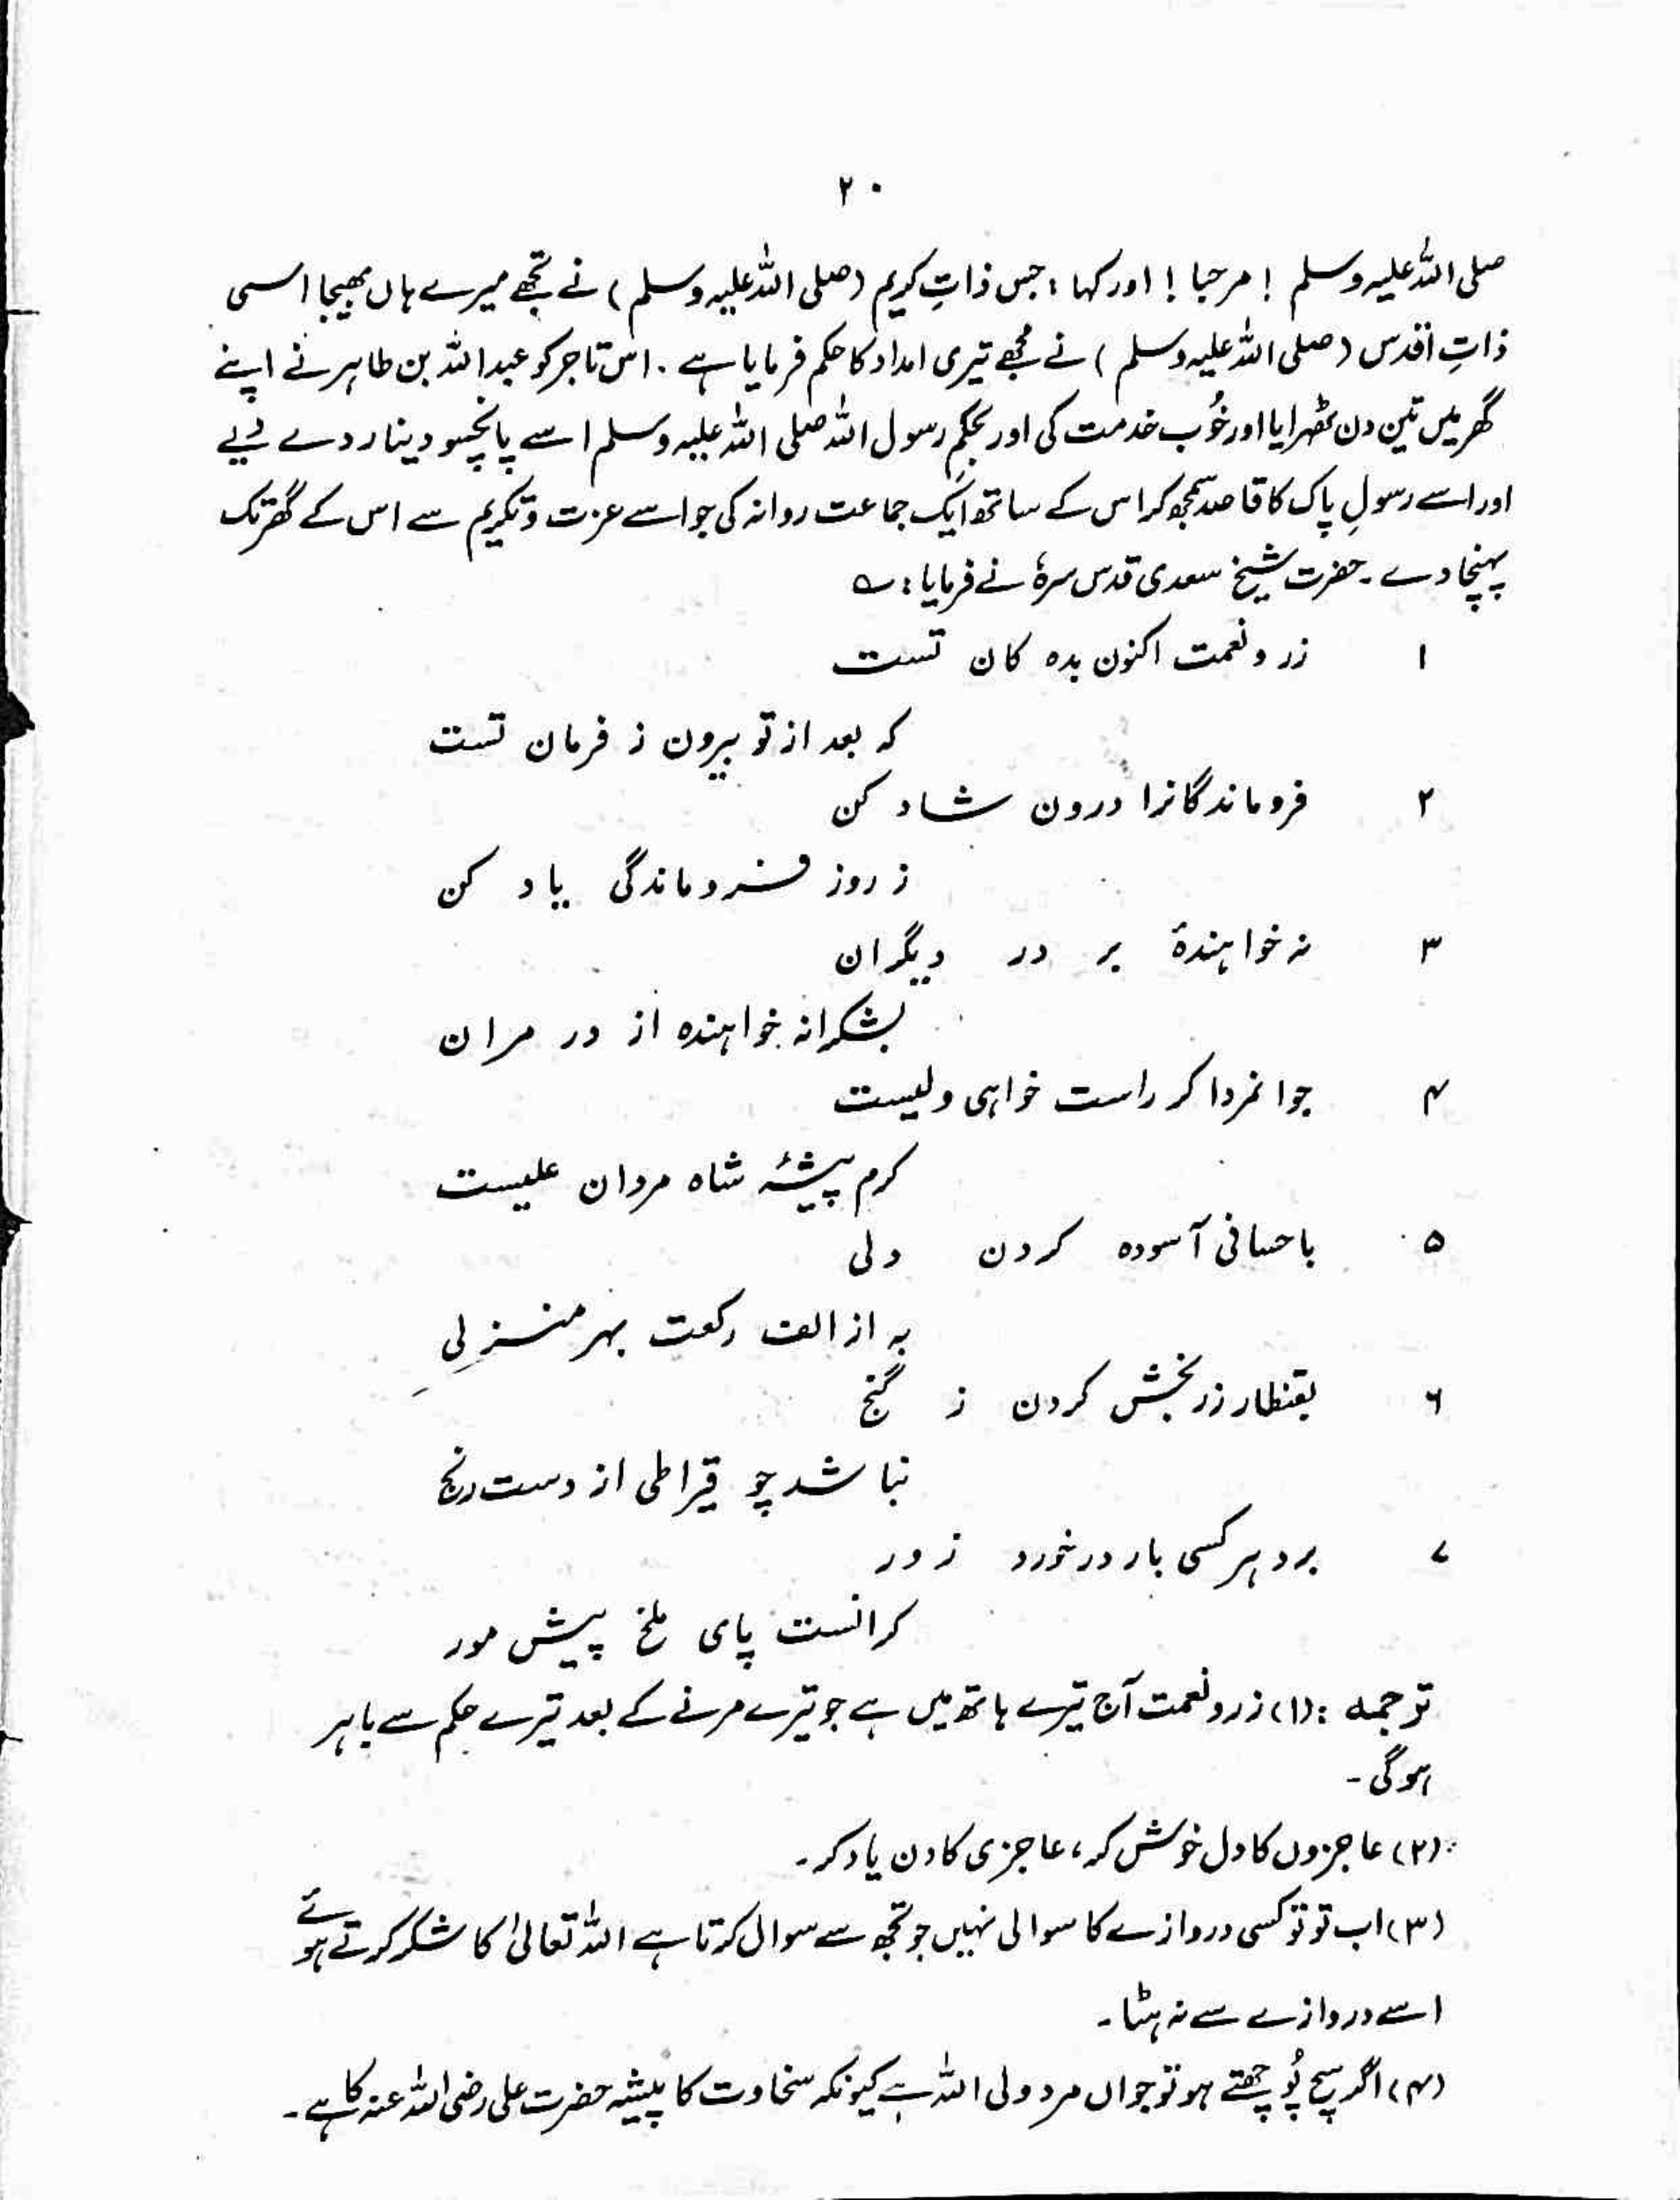 ۲۰
صلی اللہ علیہ وسلم ! مرحبا ! اور کہا : جس ذاتِ کریم (صلی اللہ علیہ وسلم) نے تجھے میرے ہاں بھیجا اسی
ذاتِ اقدس (صلی اللہ علیہ وسلم) نے مجھے تیری امداد کا حکم فرمایا ہے ۔ اس تاجر کو عبداللہ بن طاہر نے اپنے
گھر میں تین دن ٹھہرایا اور خُوب خدمت کی اور بحکمِ رسول اللہ صلی اللہ علیہ وسلم اسے پانچسو دینار دے دیے
اور اسے رسولِ پاک کا قاصد سمجھ کر اس کے ساتھ ایک جماعت روانہ کی جو اسے عزت و تکریم سے اس کے گھر تک
پہنچا دے ۔ حضرت شیخ سعدی قدس سرہٗ نے فرمایا : ؎
۱ زر و نعمت اکنون بدہ کان تست
کہ بعد از تو بیرون ز فرمان تست
۲ فروماندگانرا درون شاد کن
ز روز فروماندگی یاد کن
۳ نہ خواہندۂ بر در دیگران
بشکرانہ خواہندہ از در مران
۴ جوانمردا کر راست خواہی ولیست
کرم پیشۂ شاہ مردان علیست
۵ باحسانی آسودہ کردن دلی
بہ از الف رکعت بہر منزلی
۶ بقنطار زر بخش کردن ز گنج
نباشد چو قیراطی از دست رنج
۷ برد ہر کسی بار در خورد زور
کرانست پای ملخ پیش مور
ترجمہ : (۱) زر و نعمت آج تیرے ہاتھ میں ہے جو تیرے مرنے کے بعد تیرے حکم سے باہر
ہوگی ۔
(۲) عاجزوں کا دل خوش کر، عاجزی کا دن یاد کر ۔
(۳) اب تو تو کسی دروازے کا سوالی نہیں جو تجھ سے سوال کرتا ہے اللہ تعالیٰ کا شکر کرتے ہوئے
اسے دروازے سے نہ ہٹا ۔
(۴) اگر سچ پُوچھتے ہو تو جواں مرد ولی اللہ ہے کیونکہ سخاوت کا پیشہ حضرت علی رضی اللہ عنہ کا ہے ۔